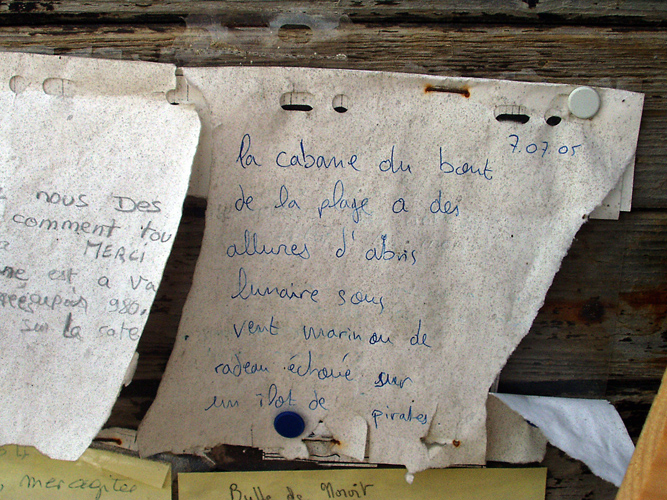 nous DES
comment tou
MERCI
est a va
980.
sur la cote
7.07.05
la cabane du bout
de la plage a des
allures d'abris
lunaire sous
vent marin ou de
radeau échoué sur
un îlot de pirates
Bulle de